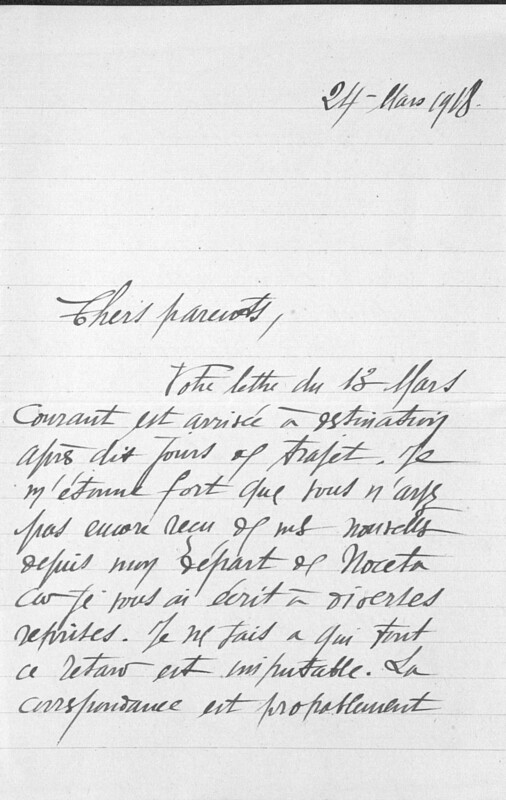 24 - Mars 1918.
Chers parents,
Votre lettre du 13 Mars
Courant est arrivée à destination
après dix jours de trajet. Je
m'étonne fort que vous n'ayez
pas encore reçu de mes nouvelles
depuis mon départ de Noceta
car je vous ai écrit à diverses
reprises. Je ne sais a qui tout
ce retard est imputable. La
correspondance est probablement